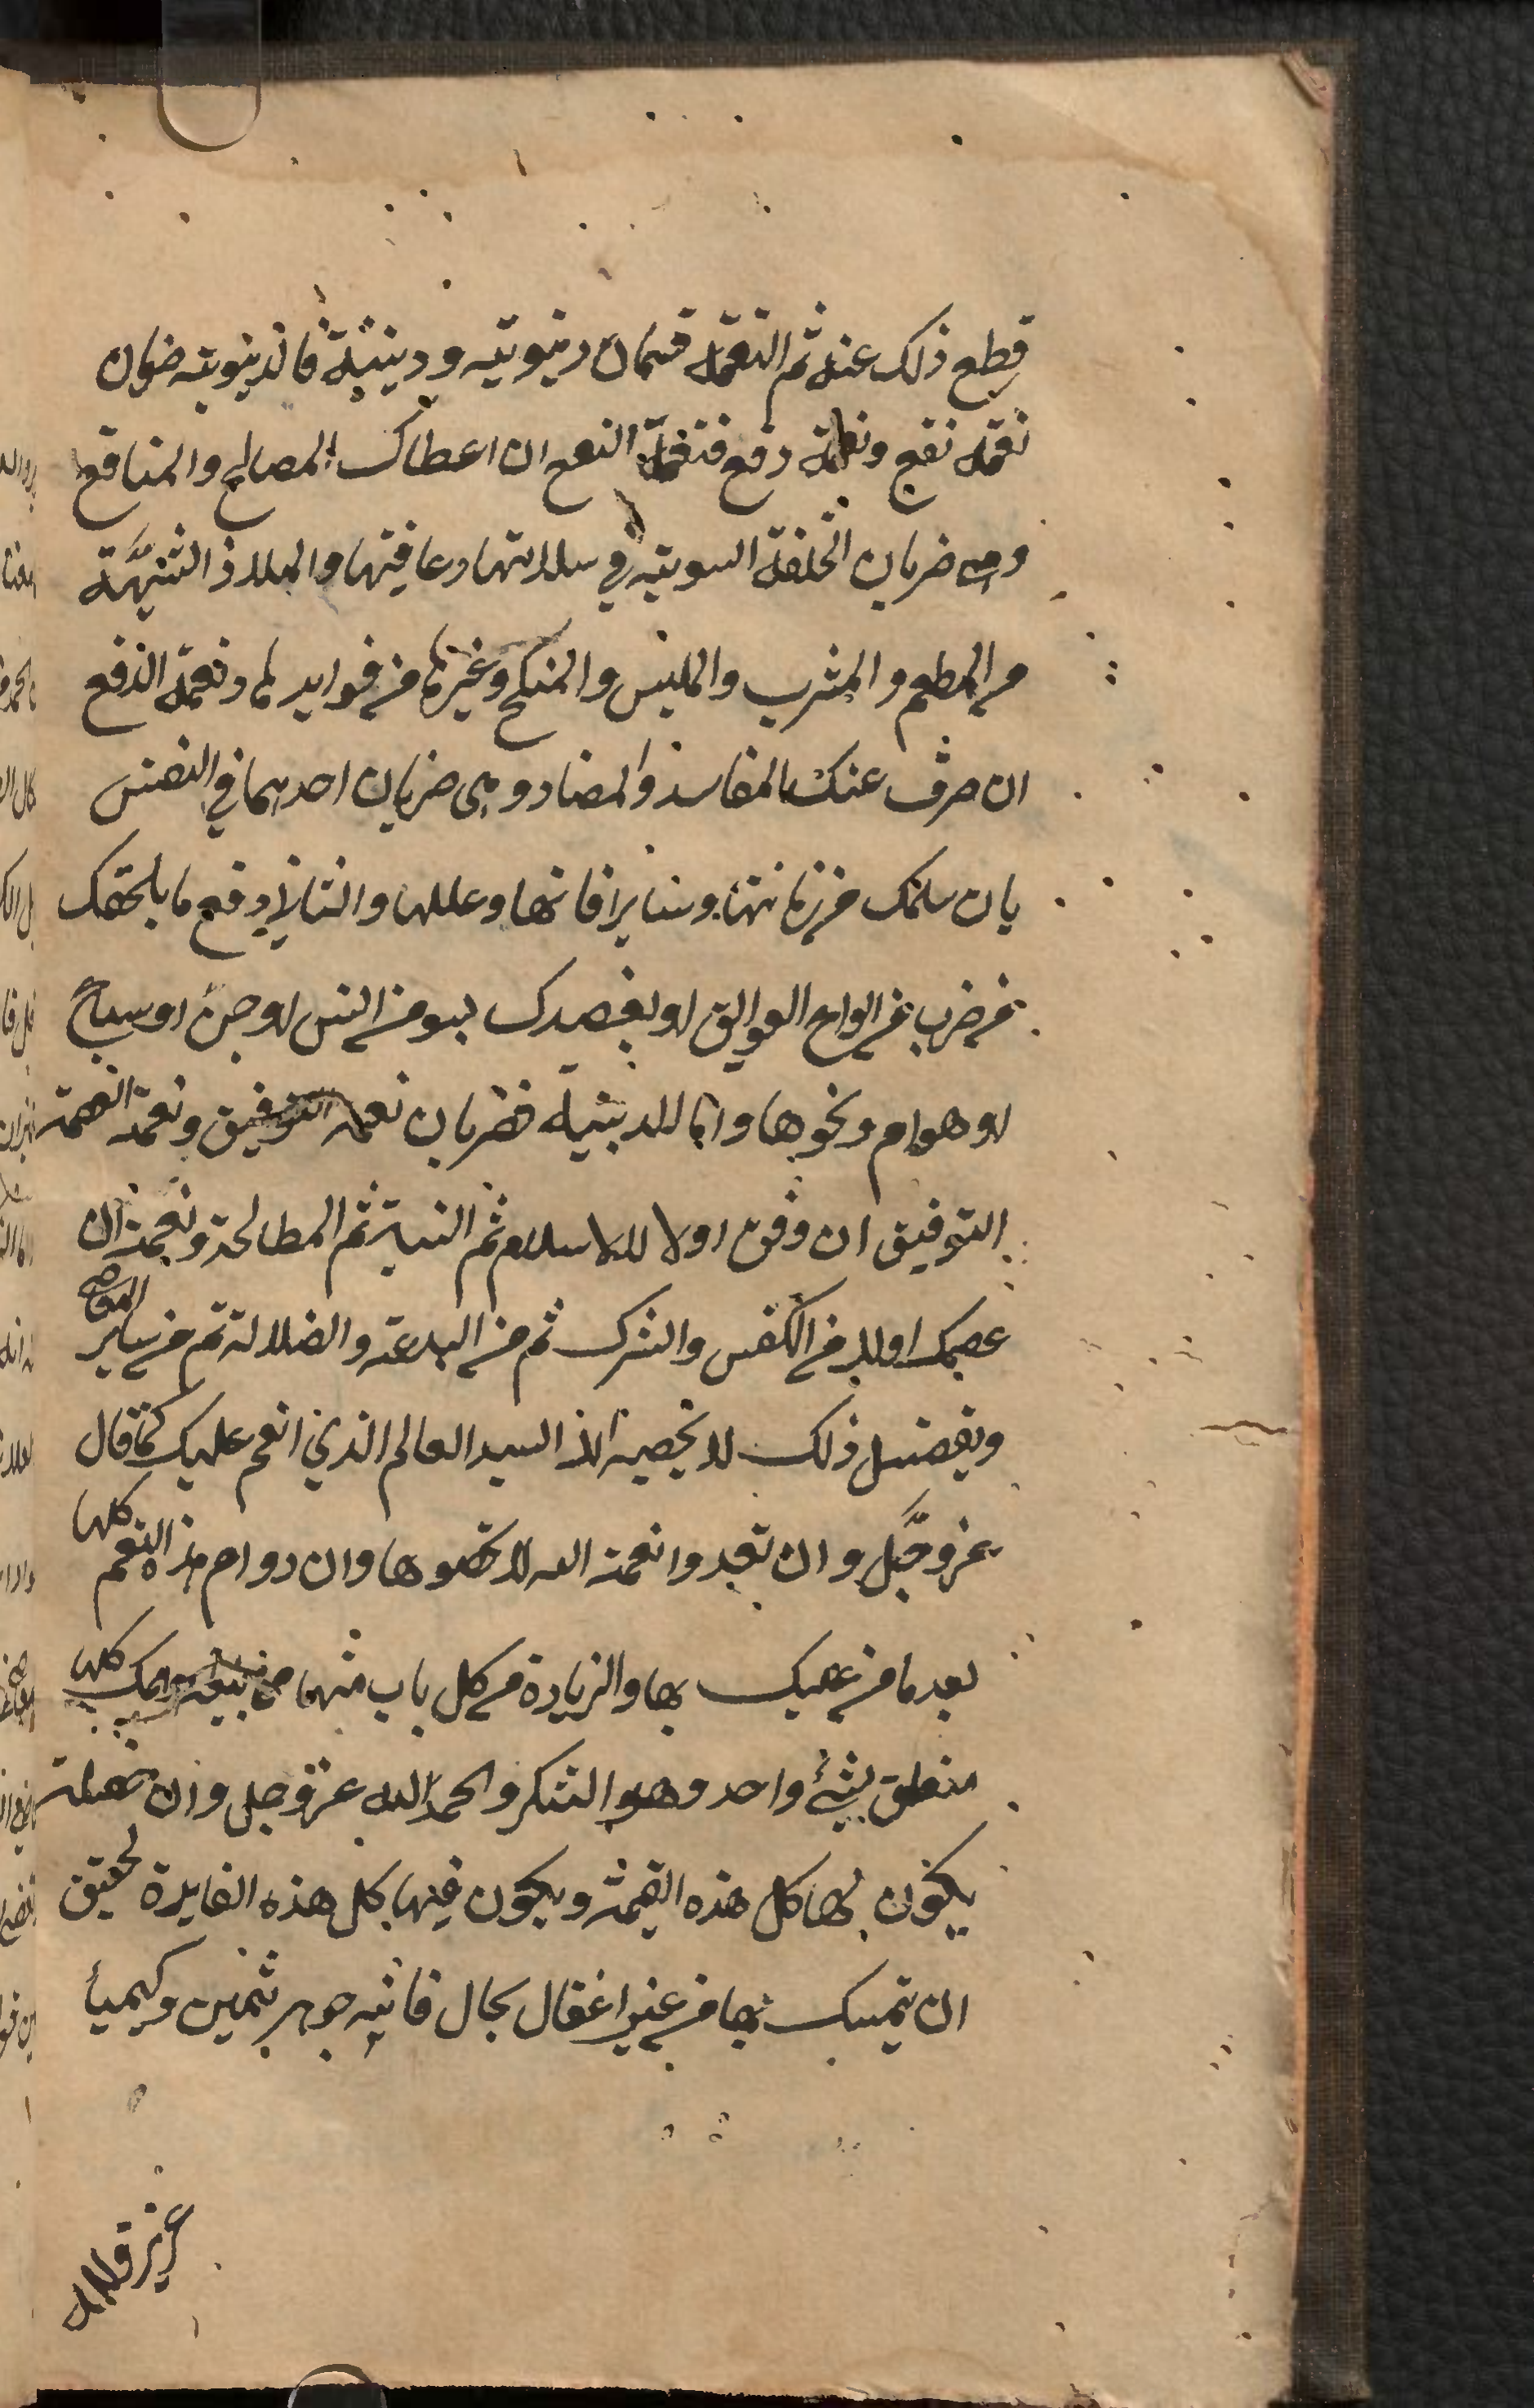 قطع ذلك عنه ثم النعمة قسمان دنيوية ودينية فالدنيوية ضربان
نعمة نفع ونعمة دفع فنعمة النفع ان اعطاك المصالح والمنافع
وهى ضربان الخلقة السوية في سلامتها وعافيتها والملاذ الشهية
من المطعم والمشرب والملبس والمنكح وغيرها من فوايدها ونعمة الدفع
ان صرف عنك المفاسد والمضار وهى ضربان احدهما في النفس
بان سلمك من زمانتها وساير افاتها وعللها والثاني دفع ما يلحقك
من ضرب من انواع العوايق او يقصدك بسو من انس او جن او سباع
او هوام ونحوها واما الدينية فضربان نعمة التوفيق ونعمة العصمة
التوفيق ان وفق اولا للاسلام ثم السنة ثم الطاعة ونعمة ان
عصمك اولا من الكفر والشرك ثم من البدعة والضلالة ثم من ساير المعاصى
وتفصيل ذلك لا يحصيه الا السيد العالم الذي انعم عليك كما قال
عز وجل وان تعدوا نعمة الله لا تحصوها وان دوام هذه النعم كلها
بعد ما من عليك بها والزيادة من كل باب منها كلها
متعلق بشئ واحد وهو الشكر والحمد الله عز وجل وان خصلة
يكون لها كل هذه القيمة ويكون فيها كل هذه الفايدة لحقيق
ان يتمسك بها من غير اغفال بحال فانه جوهر ثمين وكيميأ
عزيز والله